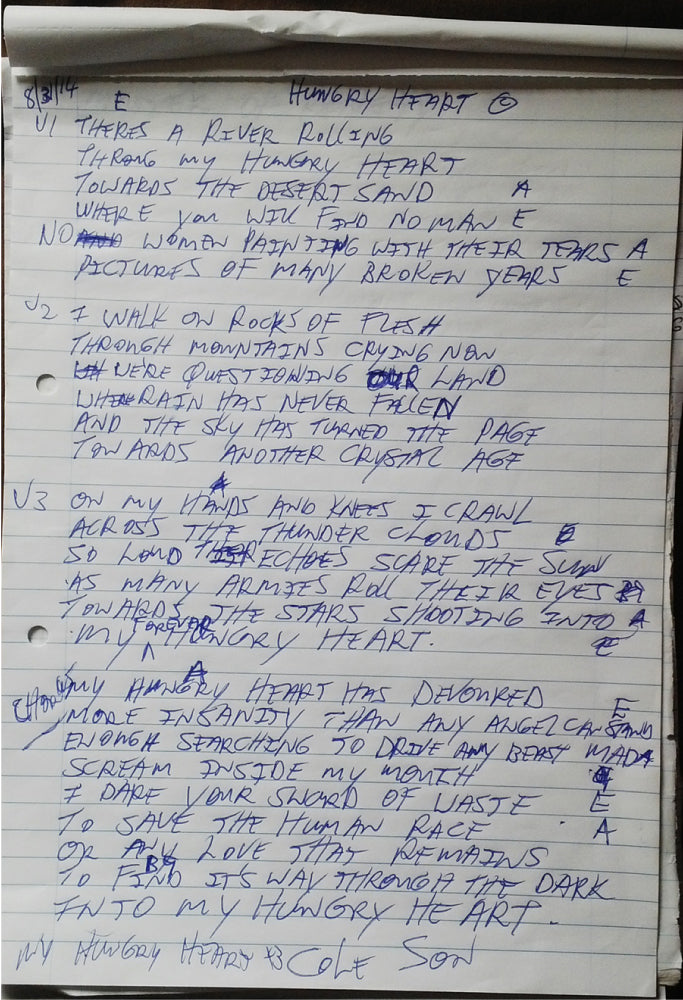 8/3/14 E HUNGRY HEART ©
V1 THERES A RIVER ROLLING
THROUG MY HUNGRY HEART
TOWARDS THE DESERT SAND A
WHERE you WILL FIND NO MAN E
NO WOMEN PAINTING WITH THEIR TEARS A
PICTURES OF MANY BROKEN YEARS E
V2 I WALK ON ROCKS OF FLESH
THROUGH MOUNTAINS CRYING NOW
WE'RE QUESTIONING OUR LAND
WHERE RAIN HAS NEVER FALLEN
AND THE SKY HAS TURNED THE PAGE
TOWARDS ANOTHER CRYSTAL AGE
A
V3 ON MY HANDS AND KNEES I CRAWL
ACROSS THE THUNDER CLOUDS E
SO LOUD THEIR ECHOES SCARE THE SUN
AS MANY ARMIES ROLL THEIR EYES
TOWARDS THE STARS SHOOTING INTO A
MY FOREVER HUNGRY HEART. E
A
CHORUS MY HUNGRY HEART HAS DEVOURED E
MORE INSANITY THAN ANY ANGEL CAN STAND
ENOUGH SEARCHING TO DRIVE ANY BEAST MAD A
SCREAM INSIDE MY MOUTH
I DARE YOUR SWORD OF WASTE E
TO SAVE THE HUMAN RACE A
OR ANY LOVE THAT REMAINS
B
TO FIND IT'S WAY THROUGH THE DARK
INTO MY HUNGRY HEART.
MY HUNGRY HEART x3 COLE SON